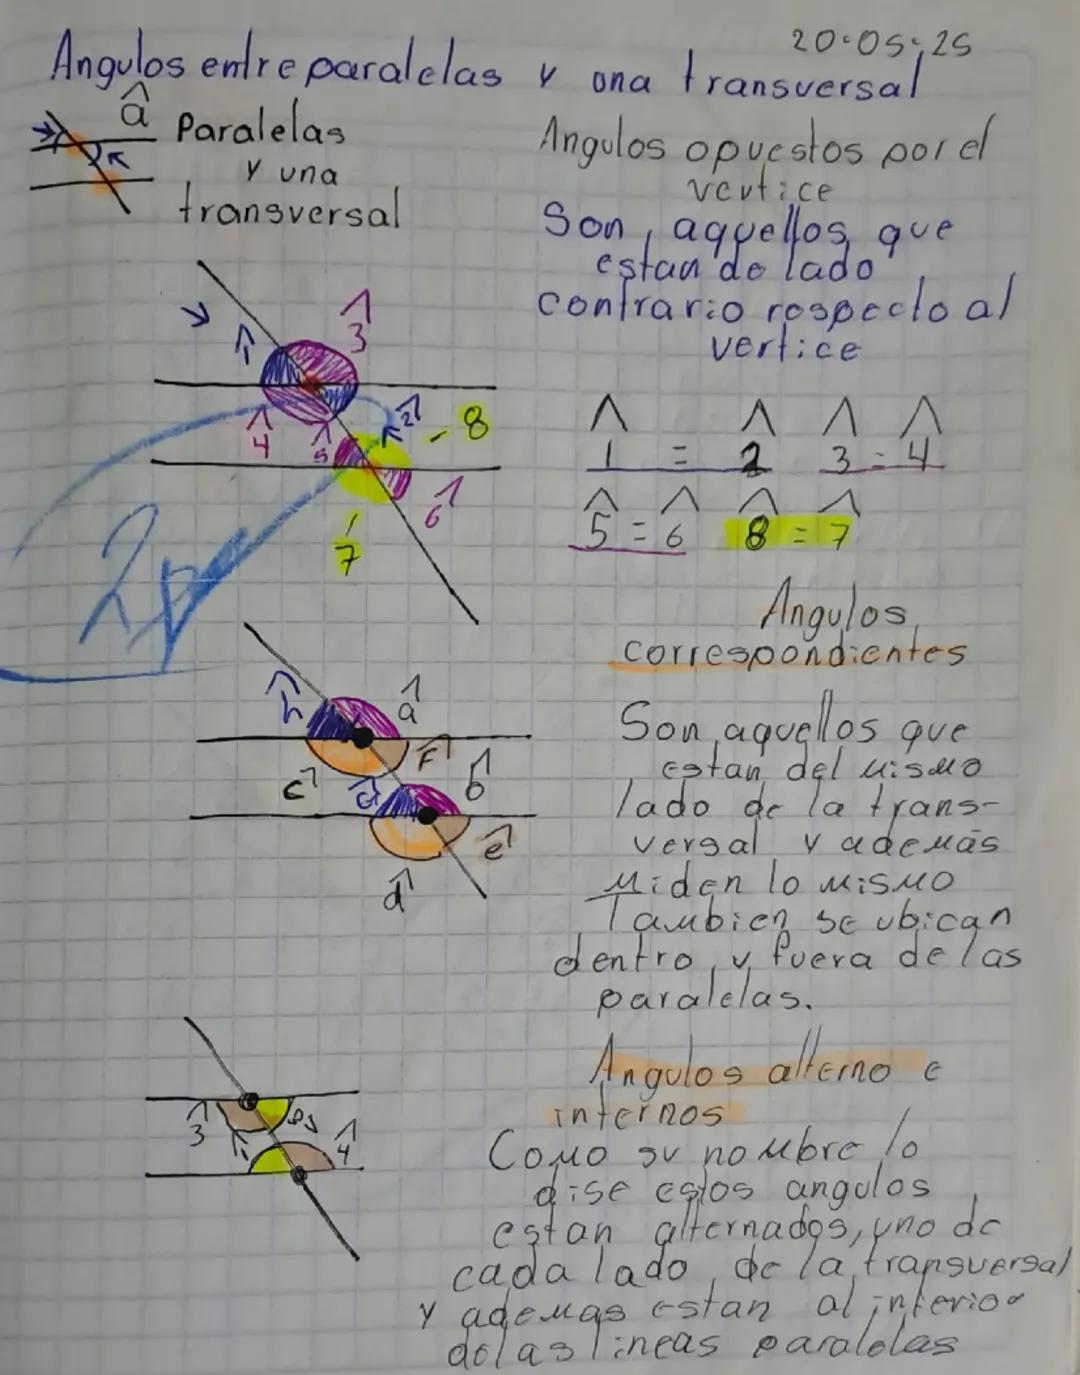 20-05-25
Angulos entre paralelas y una transversal
â Paralelas
y una
transversal
Angulos opuestos por el
vertice
Son aquellos que
estan de lado
contrario respecto al
vertice
1̂
3̂
4̂
5̂
2̂ - 8
6̂
7
1̂ = 2̂ 3̂ = 4̂
5̂ = 6̂ 8̂ = 7̂
2p
Angulos
correspondientes
ĥ â
ĉ F̂
ĝ b̂
ê
d̂
Son aquellos que
estan del mismo
lado de la trans-
versal y además
Miden lo mismo
Tambien se ubican
dentro y fuera de las
paralelas.
Angulos alterno e
internos
3̂
4̂
Como su nombre lo
dise estos angulos
estan alternados, uno de
cada lado de la transversal
y ademas estan al interior
de las lineas paralelas